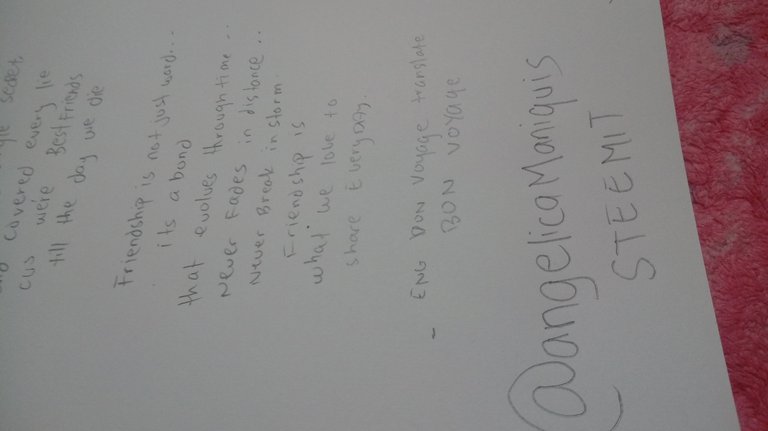 secret,
covered every lie
cus we're Best Friends
till the day we die
Friendship is not just word...
its a bond
that evolves through time...
Never Fades in distance...
Never Break in storm.
Friendship is
what we love to
share Everyday.
- ENG BON Voyage translate
BON VOYAGE
@angelicaManiquis
STEEMIT